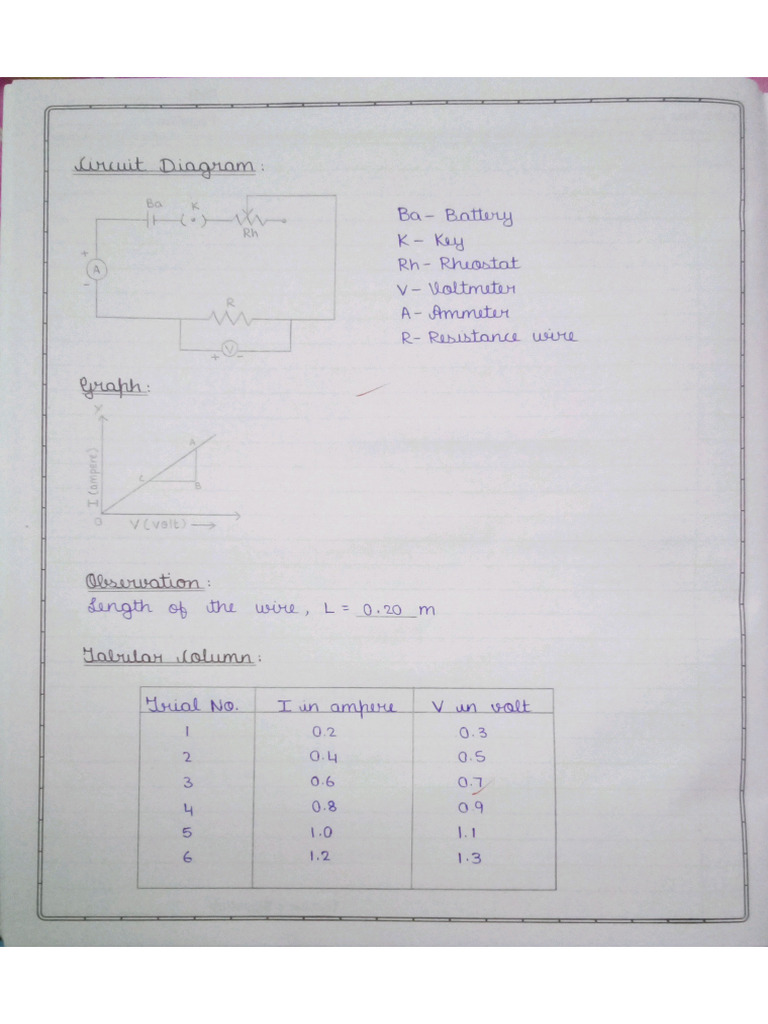 Circuit Diagram:
Ba K
Rh
+
A
-
R
V
+ -
Ba - Battery
K - Key
Rh - Rheostat
V - Voltmeter
A - Ammeter
R - Resistance wire
Graph:
Y
I (ampere)
A
C
B
O
V (volt) →
Observation:
Length of the wire, L = 0.20 m
Tabular Column:
Trial No. I in ampere V in volt
1 0.2 0.3
2 0.4 0.5
3 0.6 0.7
4 0.8 0.9
5 1.0 1.1
6 1.2 1.3